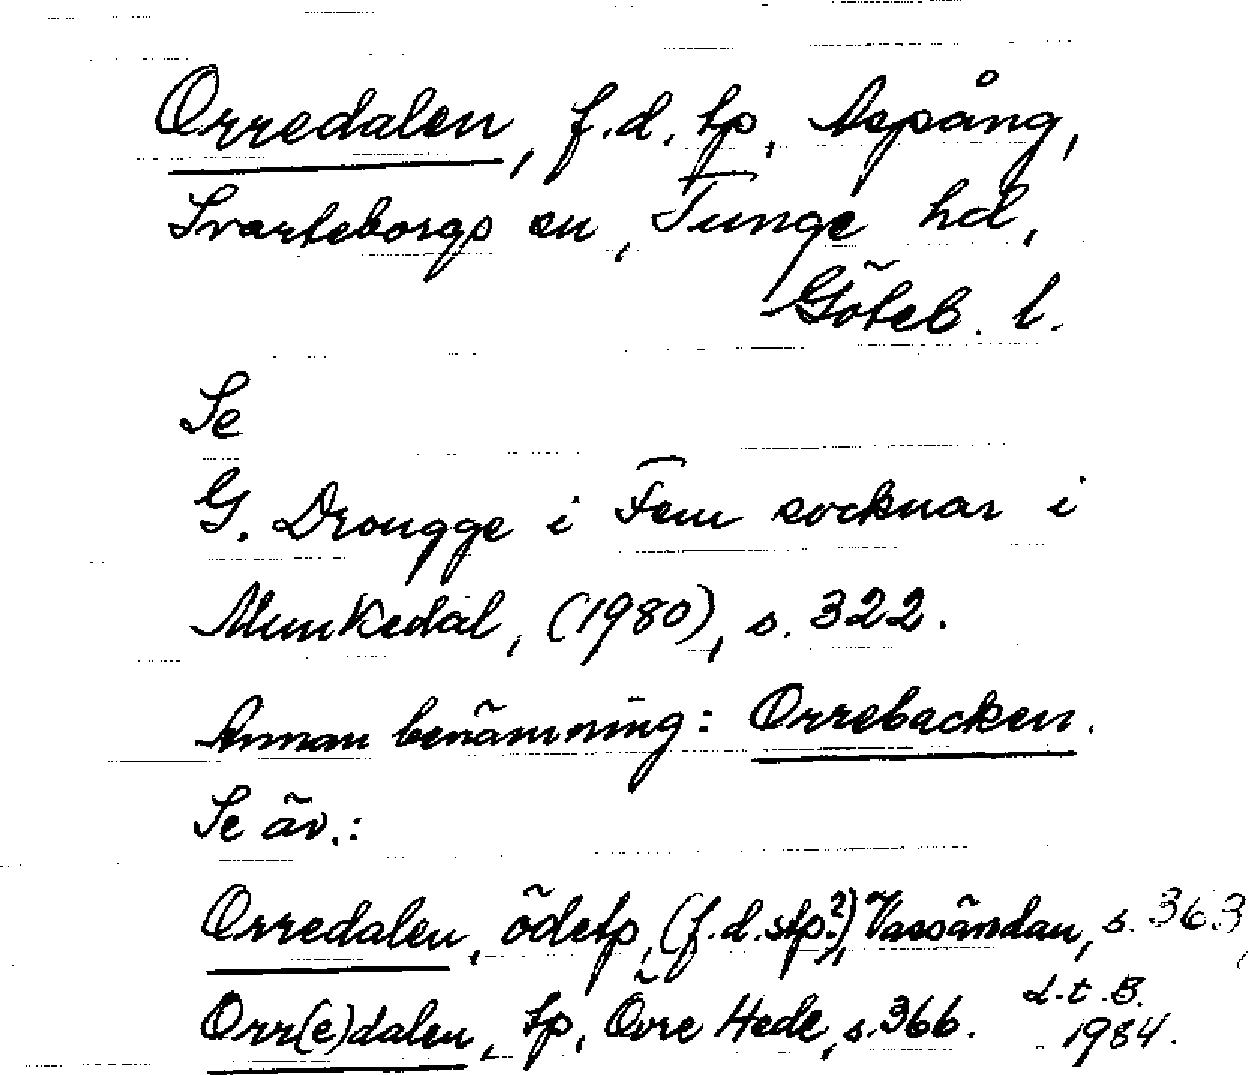 Orredalen, f.d. tp, Aspång,
Svarteborgs sn, Tunge hd,
Göteb. l.
Se
G. Drougge i Fem socknar i
Munkedal, (1980), s. 322.
Annan benämning: Orrebacken.
Se äv.:
Orredalen, ödetp, (f.d. stp?), Vassändan, s. 363,
Orr(e)dalen, tp, Övre Hede, s. 366.
d.t.B.
1984.